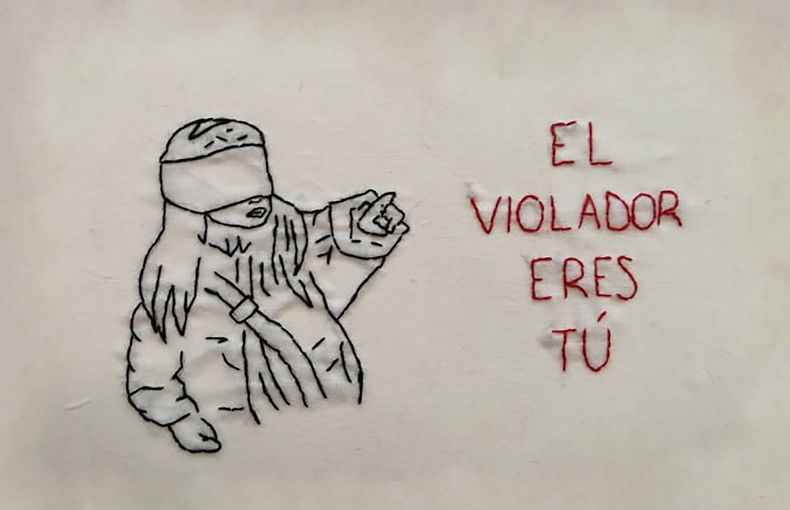 EL
VIOLADOR
ERES
TÚ